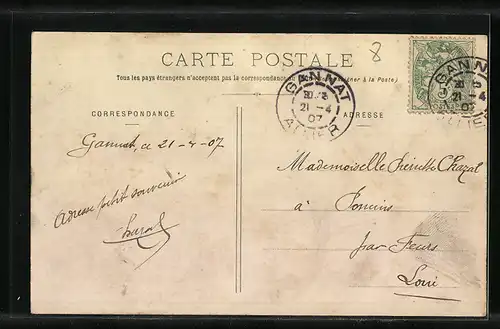 CARTE POSTALE
8
Tous les pays étrangers n'acceptent pas la correspondance au (à la Poste)
CORRESPONDANCE
ADRESSE
GANNAT
21 -4
07
ALLIER
GANNAT
21 -4
07
ALLIER
Gannat, ce 21-4-07
Mademoiselle Chazal
à
Adresse petit souvenir
par Feurs
Loire